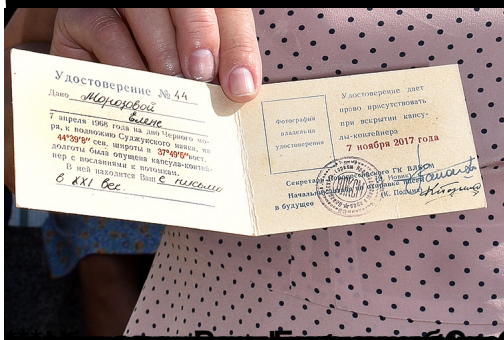 Удостоверение № 44
Дано Морозовой
Елене
7 апреля 1968 года на дно Черного мо-
ря, к подножию Суджукского маяка, на
44°39'8" сев. широты и 37°49'0" вост.
долготы была опущена капсула-контей-
нер с посланиями к потомкам.
В ней находится Ваше письмо
в XXI век.
Фотография
владельца
удостоверения
Удостоверение дает
право присутствовать
при вскрытии капсу-
лы-контейнера
7 ноября 2017 года
Секретарь Новороссийского ГК ВЛКСМ
Начальник по отправке
в будущее